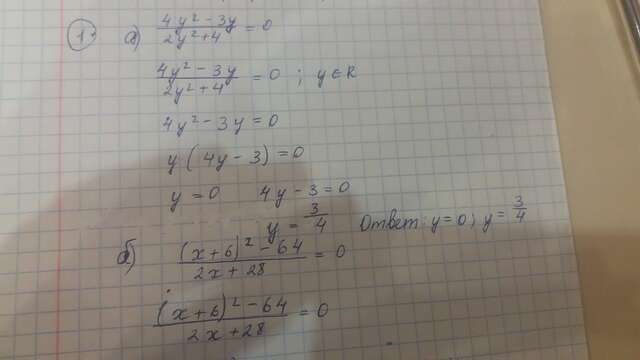 1. а) (4y² - 3y)/(2y² + 4) = 0
(4y² - 3y)/(2y² + 4) = 0 ; y ∈ R
4y² - 3y = 0
y (4y - 3) = 0
y = 0 4y - 3 = 0
y = 3/4 Ответ: y = 0; y = 3/4
б) ((x + 6)² - 64)/(2x + 28) = 0
((x + 6)² - 64)/(2x + 28) = 0